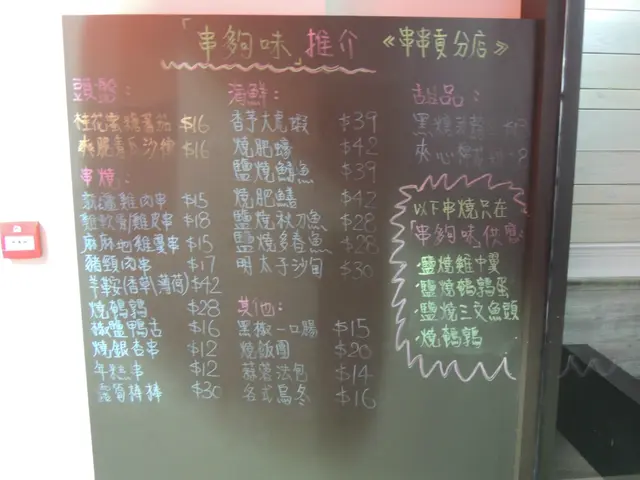 「串夠味 推介 《串串貢分店》
頭盤：
桂花蜜糖蕃茄 $16
$16
串燒：
雞肉串 $15
雞軟骨/雞皮串 $18
麻麻地雞蔓串 $15
豬頸肉串 $17
羊鞍(香草\薄荷) $42
燒鵪鶉 $28
椒鹽鴨舌 $16
燒銀杏串 $12
年糕串 $12
露筍棒棒 $30
海鮮：
香芋大虎蝦 $39
燒肥蠔 $42
鹽燒鱔魚 $39
燒肥鱔 $42
鹽燒秋刀魚 $28
鹽燒多春魚 $28
明太子沙甸 $30
其他：
黑椒一口腸 $15
燒飯團 $20
蒜蓉法包 $14
各式烏冬 $16
甜品：
黑糖
夾心
以下串燒只在
「串夠味供應
·鹽燒雞中翼
·鹽燒鵪鶉蛋
·鹽燒三文魚頭
·燒鵪鶉